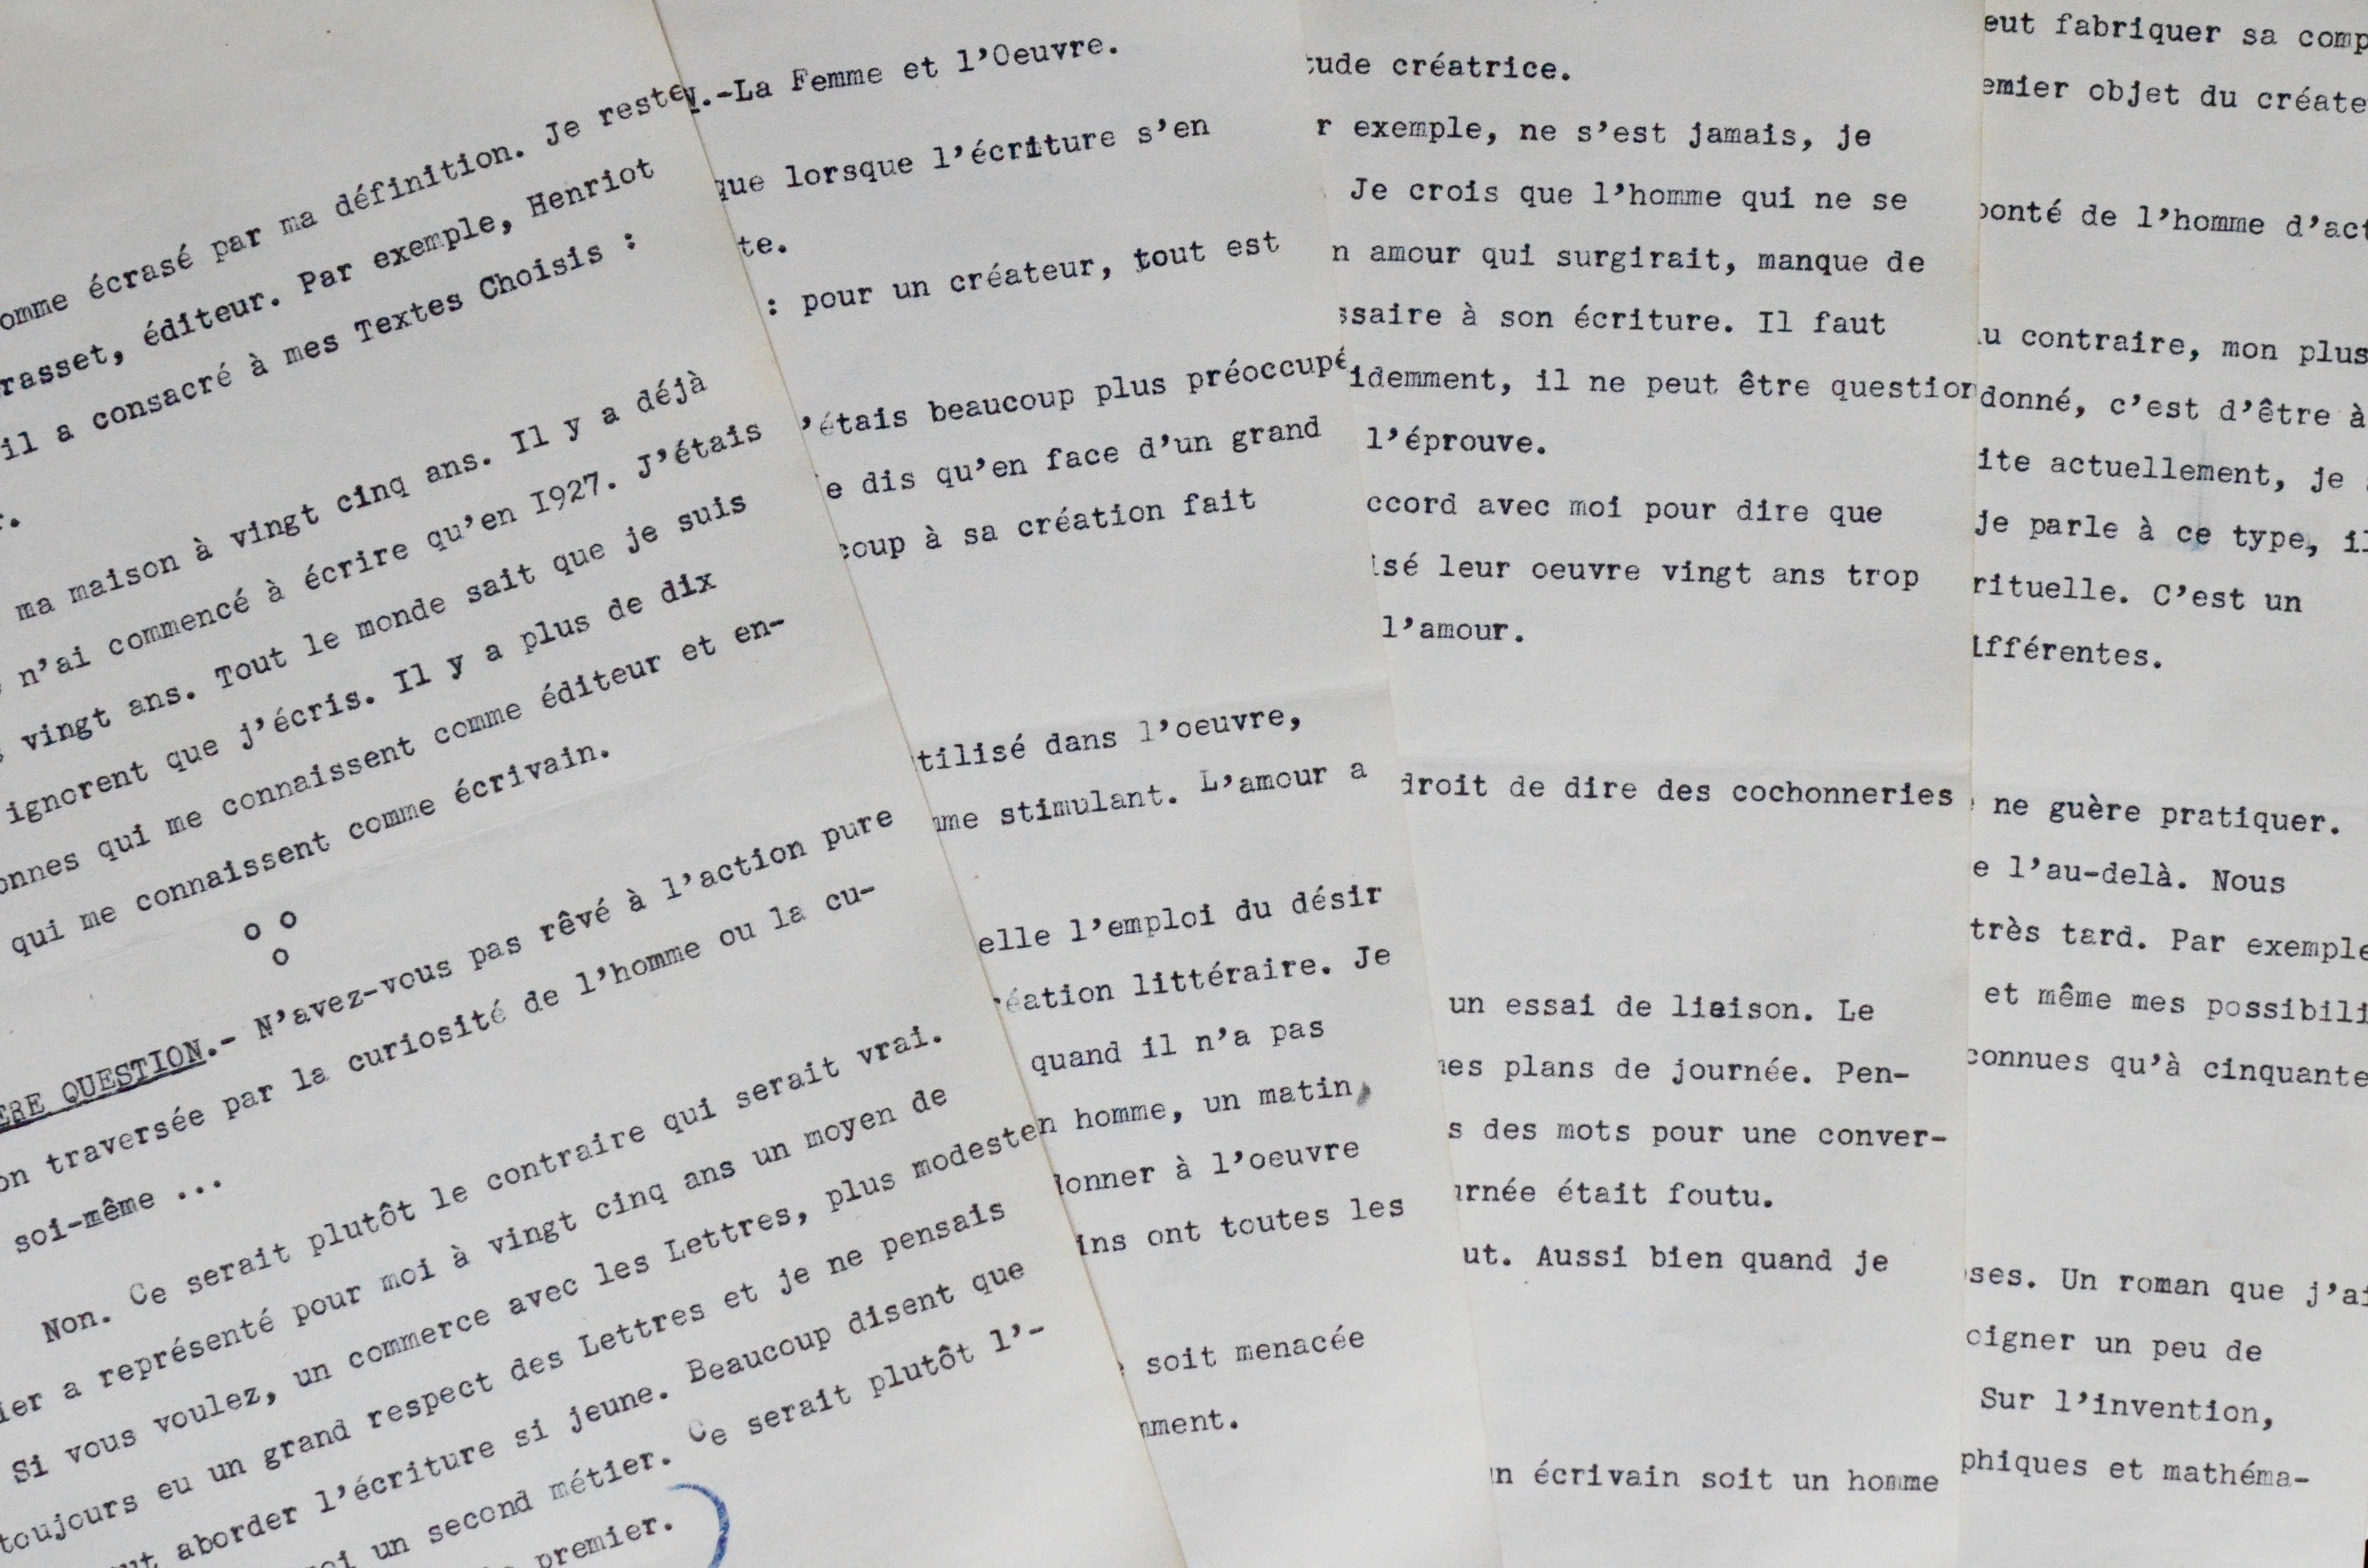 écrasé par ma définition. Je reste
éditeur. Par exemple, Henriot
il a consacré à mes Textes Choisis :
ma maison à vingt cinq ans. Il y a déjà
n'ai commencé à écrire qu'en I927. J'étais
vingt ans. Tout le monde sait que je suis
ignorent que j'écris. Il y a plus de dix
qui me connaissent comme éditeur et en-
qui me connaissent comme écrivain.
o o
o
QUESTION.- N'avez-vous pas rêvé à l'action pure
traversée par la curiosité de l'homme ou la cu-
soi-même ...
Non. Ce serait plutôt le contraire qui serait vrai.
a représenté pour moi à vingt cinq ans un moyen de
Si vous voulez, un commerce avec les Lettres, plus modeste
toujours eu un grand respect des Lettres et je ne pensais
aborder l'écriture si jeune. Beaucoup disent que
un second métier. Ce serait plutôt l'-
premier.
.-La Femme et l'Oeuvre.
que lorsque l'écriture s'en
te.
: pour un créateur, tout est
'étais beaucoup plus préoccupé
e dis qu'en face d'un grand
coup à sa création fait
tilisé dans l'oeuvre,
me stimulant. L'amour a
elle l'emploi du désir
éation littéraire. Je
quand il n'a pas
n homme, un matin,
onner à l'oeuvre
ins ont toutes les
soit menacée
ment.
tude créatrice.
r exemple, ne s'est jamais, je
Je crois que l'homme qui ne se
n amour qui surgirait, manque de
ssaire à son écriture. Il faut
idemment, il ne peut être question
l'éprouve.
ccord avec moi pour dire que
isé leur oeuvre vingt ans trop
l'amour.
droit de dire des cochonneries
un essai de liaison. Le
mes plans de journée. Pen-
s des mots pour une conver-
urnée était foutu.
ut. Aussi bien quand je
un écrivain soit un homme
eut fabriquer sa comp
emier objet du créate
bonté de l'homme d'act
u contraire, mon plus
donné, c'est d'être à
ite actuellement, je
je parle à ce type, il
rituelle. C'est un
ifférentes.
ne guère pratiquer.
e l'au-delà. Nous
très tard. Par exemple
et même mes possibili
connues qu'à cinquante
ses. Un roman que j'ai
oigner un peu de
Sur l'invention,
phiques et mathéma-